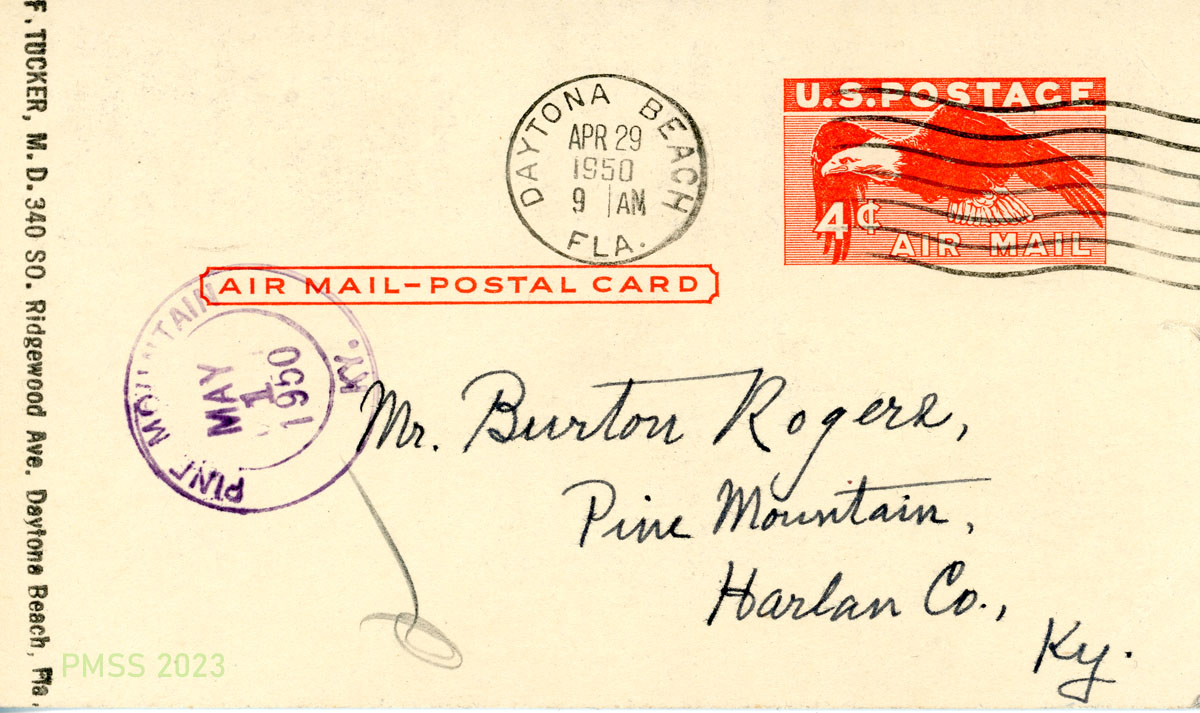 F. TUCKER, M. D. 340 SO. Ridgewood Ave. Daytona Beach, Fla.
DAYTONA BEACH
APR 29
1950
9 AM
FLA.
U.S. POSTAGE
4¢
AIR MAIL
AIR MAIL–POSTAL CARD
PINE MOUNTAIN KY.
MAY
1
1950
Mr. Burton Rogers,
Pine Mountain,
Harlan Co.,
Ky.
PMSS 2023